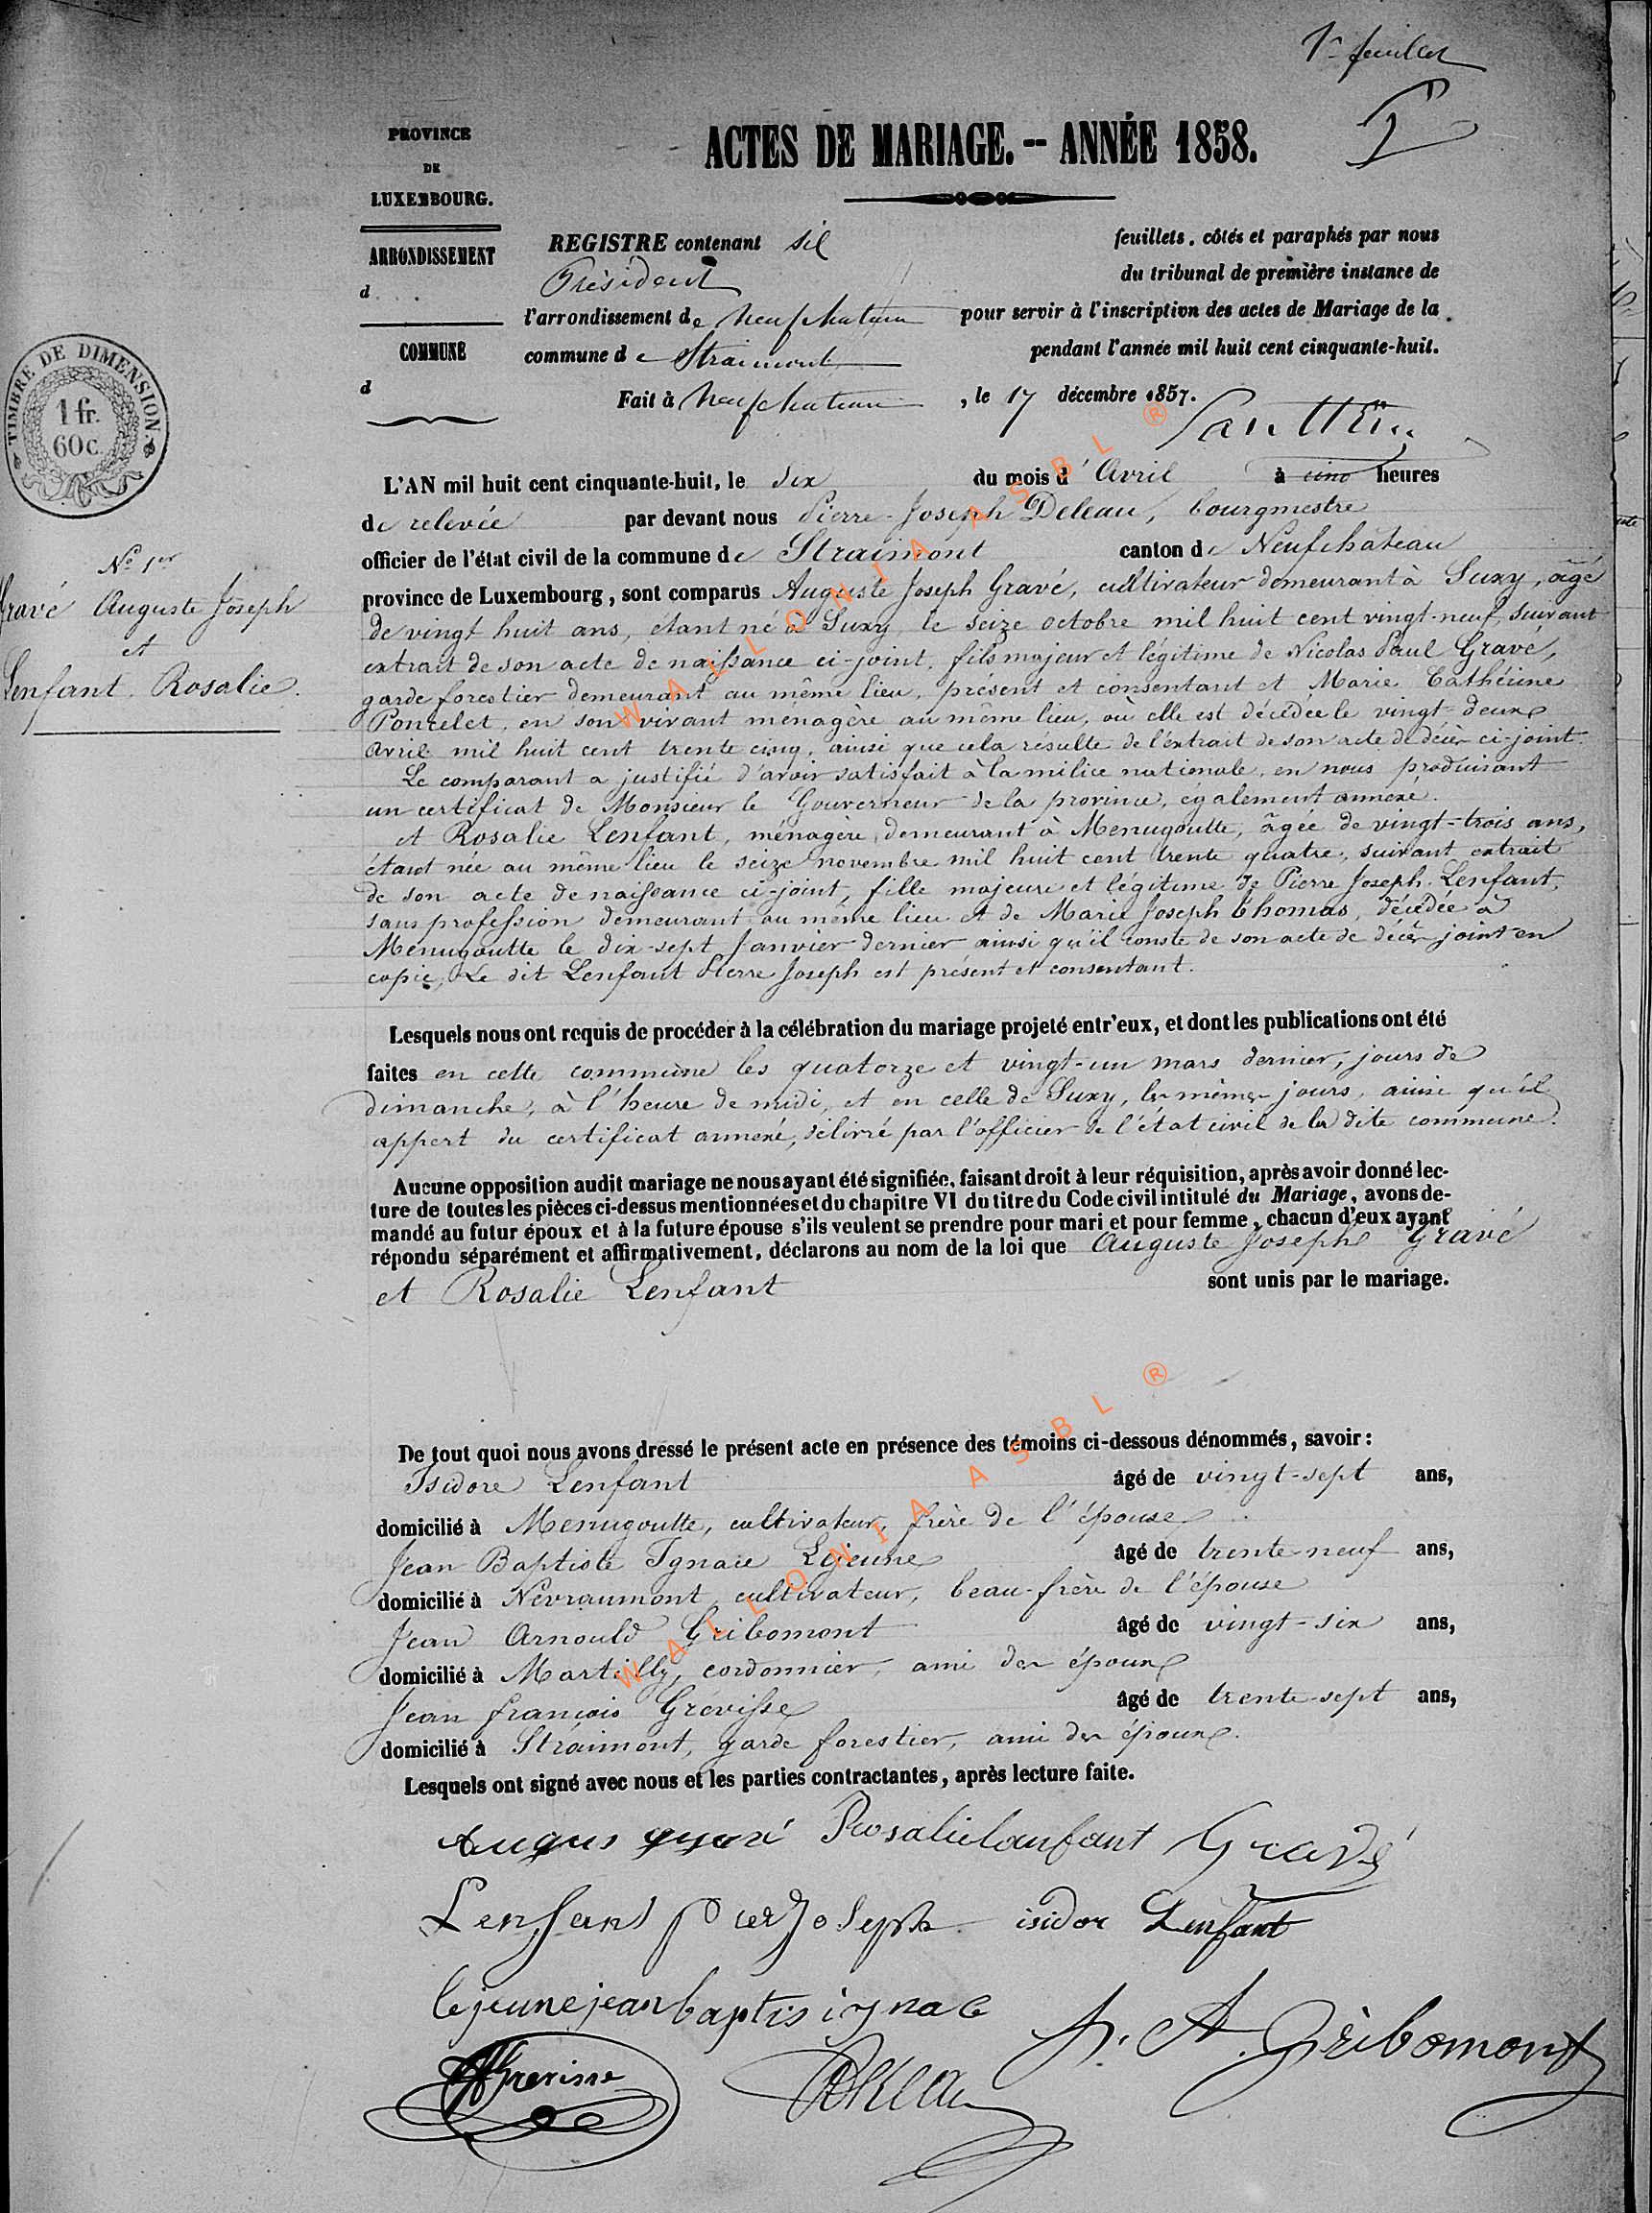 1er feuillet
1
PROVINCE
DE
LUXEMBOURG.
ACTES DE MARIAGE. -- ANNÉE 1858.
ARRONDISSEMENT
d
COMMUNE
d
REGISTRE contenant six feuillets, côtés et paraphés par nous
Président du tribunal de première instance de
l'arrondissement de Neufchateau pour servir à l'inscription des actes de Mariage de la
commune de Straimont pendant l'année mil huit cent cinquante-huit.
Fait à Neufchateau, le 17 décembre 1857.
TIMBRE DE DIMENSION
1 fr.
60 c.
L'AN mil huit cent cinquante-huit, le six du mois d'Avril à cinq heures
de relevée par devant nous Pierre-Joseph Deleau, bourgmestre
officier de l'état civil de la commune de Straimont canton de Neufchateau
No 1er
Gravé Auguste Joseph
et
Lenfant Rosalie.
province de Luxembourg, sont comparus Auguste Joseph Gravé, cultivateur demeurant à Suxy, âgé
de vingt huit ans, étant né à Suxy le seize octobre mil huit cent vingt-neuf, suivant
extrait de son acte de naissance ci-joint, fils majeur et légitime de Nicolas Paul Gravé,
garde forestier demeurant au même lieu, présent et consentant et Marie Cathérine
Poncelet, en son vivant ménagère au même lieu, où elle est décédée le vingt-deux
avril mil huit cent trente cinq, ainsi que cela résulte de l'extrait de son acte de décès ci-joint.
Le comparant a justifié d'avoir satisfait à la milice nationale, en nous produisant
un certificat de Monsieur le Gouverneur de la province, également annexé.
et Rosalie Lenfant, ménagère, demeurant à Menugoutte, âgée de vingt-trois ans,
étant née au même lieu le seize novembre mil huit cent trente quatre, suivant extrait
de son acte de naissance ci-joint, fille majeure et légitime de Pierre Joseph Lenfant,
sans profession demeurant au même lieu et de Marie Joseph Thomas, décédée à
Menugoutte le dix-sept Janvier dernier ainsi qu'il conste de son acte de décès joint en
copie, Le dit Lenfant Pierre Joseph est présent et consentant.
Lesquels nous ont requis de procéder à la célébration du mariage projeté entr'eux, et dont les publications ont été
faites en cette commune les quatorze et vingt-un mars dernier, jours de
dimanche, à l'heure de midi, et en celle de Suxy, les mêmes jours, ainsi qu'il
appert du certificat annexé, délivré par l'officier de l'état civil de la dite commune.
Aucune opposition audit mariage ne nous ayant été signifiée, faisant droit à leur réquisition, après avoir donné lec-
ture de toutes les pièces ci-dessus mentionnées et du chapitre VI du titre du Code civil intitulé du Mariage, avons de-
mandé au futur époux et à la future épouse s'ils veulent se prendre pour mari et pour femme, chacun d'eux ayant
répondu séparément et affirmativement, déclarons au nom de la loi que Auguste Joseph Gravé
et Rosalie Lenfant sont unis par le mariage.
De tout quoi nous avons dressé le présent acte en présence des témoins ci-dessous dénommés, savoir :
Isidore Lenfant âgé de vingt-sept ans,
domicilié à Menugoutte, cultivateur, frère de l'épouse
Jean Baptiste Ignace Lejeune âgé de trente-neuf ans,
domicilié à Névraumont, cultivateur, beau-frère de l'épouse
Jean Arnould Gribomont âgé de vingt-six ans,
domicilié à Martilly, cordonnier, ami des époux
Jean François Grévisse âgé de trente-sept ans,
domicilié à Straimont, garde forestier, ami des époux.
Lesquels ont signé avec nous et les parties contractantes, après lecture faite.
Rosalie lanfant Gravé
Lenfant Joseph isidor Lenfant
lejeune jean baptis ignace
J. A. Gribomont
Grevisse
WALLONIA ASBL ®
WALLONIA ASBL ®